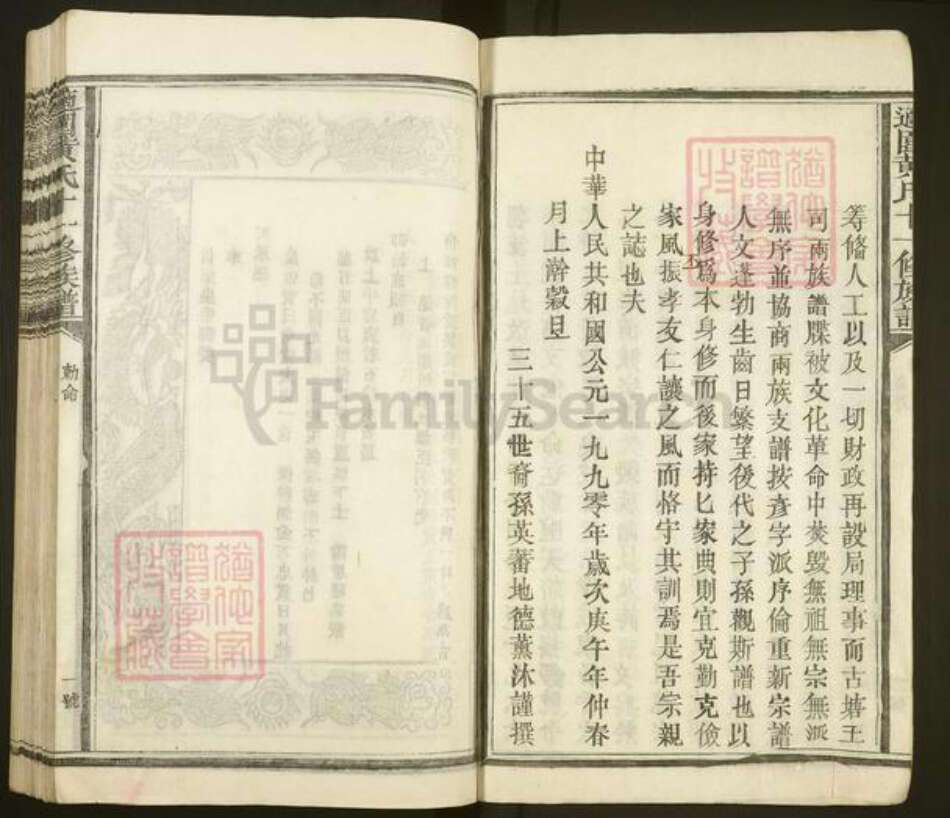 黃氏十一修族譜
籌備人工以及一切財政再設局理事而古塘王
司兩族譜牒被文化革命中焚毀無祖無宗無派
無序並協商兩族支譜按彥字派序倫重新宗譜
人文蓬勃生齒日繁望後代之子孫觀斯譜也以
身修爲本身修而後家持匕家典則宜克勤克儉
家風振孝友仁讓之風而恪守其訓焉是吾宗親
之誌也夫
中華人民共和國公元一九九零年歲次庚午年仲春
月上澣穀旦
三十五世裔孫英蕃地德薰沐謹撰
黃氏十一修族譜
勅命
一號
FamilySearch